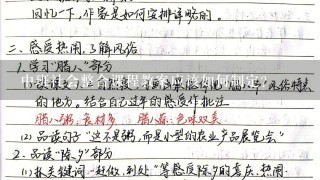 回忆一下，作家是如何安排详略的。
二、感受热闹，了解风俗
1.学习“腊八”部分
中班社会整合课程教案应该如何制定？
风俗特点
的地方。结合自己过年的感受作批注
腊八粥：食材多 腊八蒜：色味双美
(2)品读句子“这不是粥，而是小型的农业产品展览会”
2.品读“除夕”部分
(1)抓关键词——赶做、到处“等感受除夕的喜庆、热闹